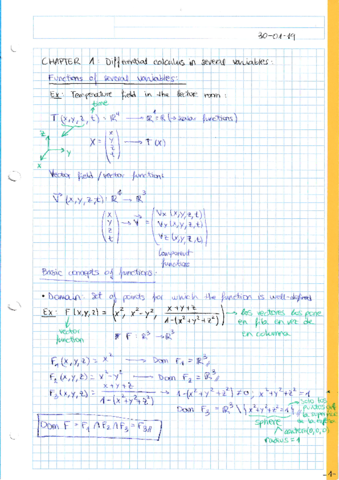 30-01-19
CHAPTER 1. Differential calculus in several variables:
Functions of several variables:
Ex: Temperature field in the lecture room:
time
T(x,y,z,t): ℝ⁴ → ℝ (scalar functions)
X = (x y z t) → T(x)
z
x
y
Vector field / vector function:
V⃗(x,y,z,t): ℝ⁴ → ℝ³
(x y z t) → V⃗ = (Vx (x,y,z,t)
Vy (x,y,z,t)
Vz (x,y,z,t))
Component functions
Basic concepts of functions:
• Domain: Set of points for which the function is well-defined
Ex: F(x,y,z) = (x², x²-y², (x+y+z)/(1-(x²+y²+z²))) → los vectores los pone
en fila en vez de
en columna.
vector function
F: ℝ³ → ℝ³
F₁(x,y,z) = x² → Dom F₁ = ℝ³
F₂(x,y,z) = x²-y² → Dom F₂ = ℝ³
F₃(x,y,z) = (x+y+z)/(1-(x²+y²+z²)) → 1-(x²+y²+z²) ≠ 0, x²+y²+z² = 1
Dom F₃ = ℝ³ \ {x²+y²+z² = 1}
solo los
puntos
sphere
(0,0,0)
radius = 1
Dom F = F₁ ∩ F₂ ∩ F₃ = F₃
-1-